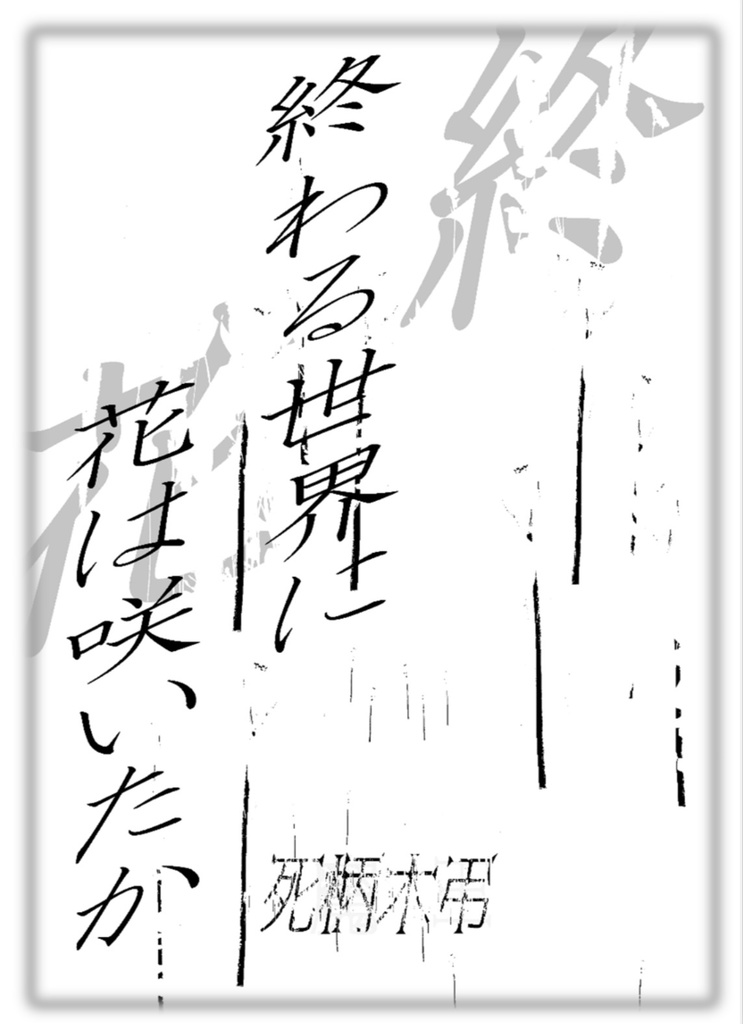 終わる世界に
花は咲いたか
死柄木弔
終
花